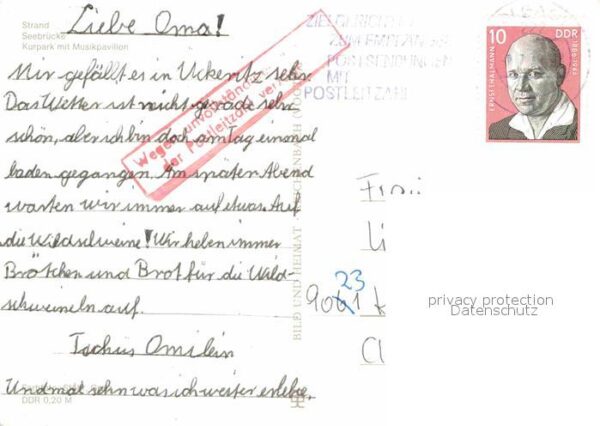 Strand
Seebrücke
Kurpark mit Musikpavillon
Liebe Oma!
Mir gefällt es in Ückeritz sehr.
Das Wetter ist nicht gerade sehr
schön, aber ich bin doch am Tag einmal
baden gegangen. Am späten Abend
warten wir immer auf etwas. Auf
die Wildschweine! Wir heben immer
Brötchen und Brot für die Wild-
schweineln auf.
Tschüs Omilein
Und mal sehn was ich weiter erlebe.
DDR 0,20 M
Wegen unvollständiger
der Postleitzahl
ZIELGERICHTET
ZUM EMPFÄNGER
POSTSENDUNGEN
MIT
POSTLEITZAHL
10 DDR
ERNST THÄLMANN
1886-1944
BILD UND HEIMAT
Frau
Li
23
9061
privacy protection
Datenschutz
Cl